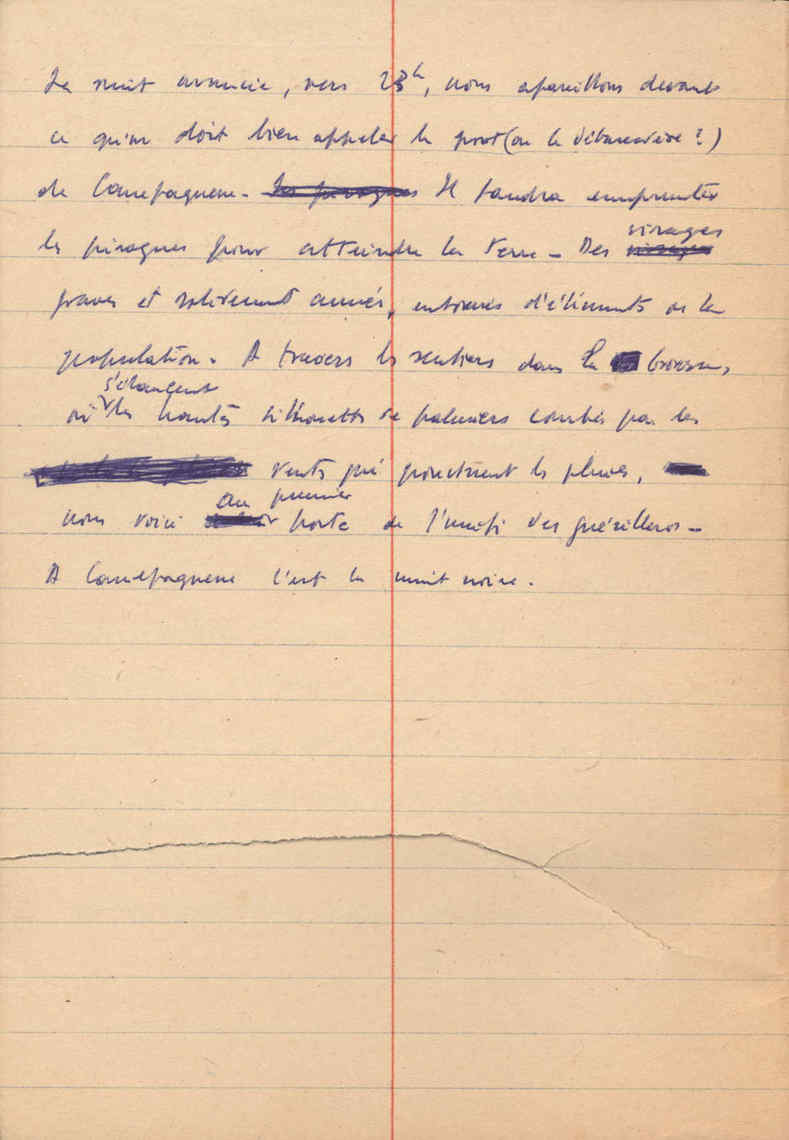 La nuit avancée, vers 23h, nous apareillons devant
ce qu'on doit bien appeler le port (ou le débarcadère ?)
de Canefaquene. Il faudra emprunter
les pirogues pour atteindre la terre – Des visages
graves et solidement armés, entourés d'éléments de la
population. A travers les sentiers dans la brousse,
où s'élancent les hautes silhouettes de palmiers courbés par les
vents qui ponctuent les pluies,
nous voici au premier poste de l'unité des guérilleros –
A Canefaquene c'est la nuit noire.